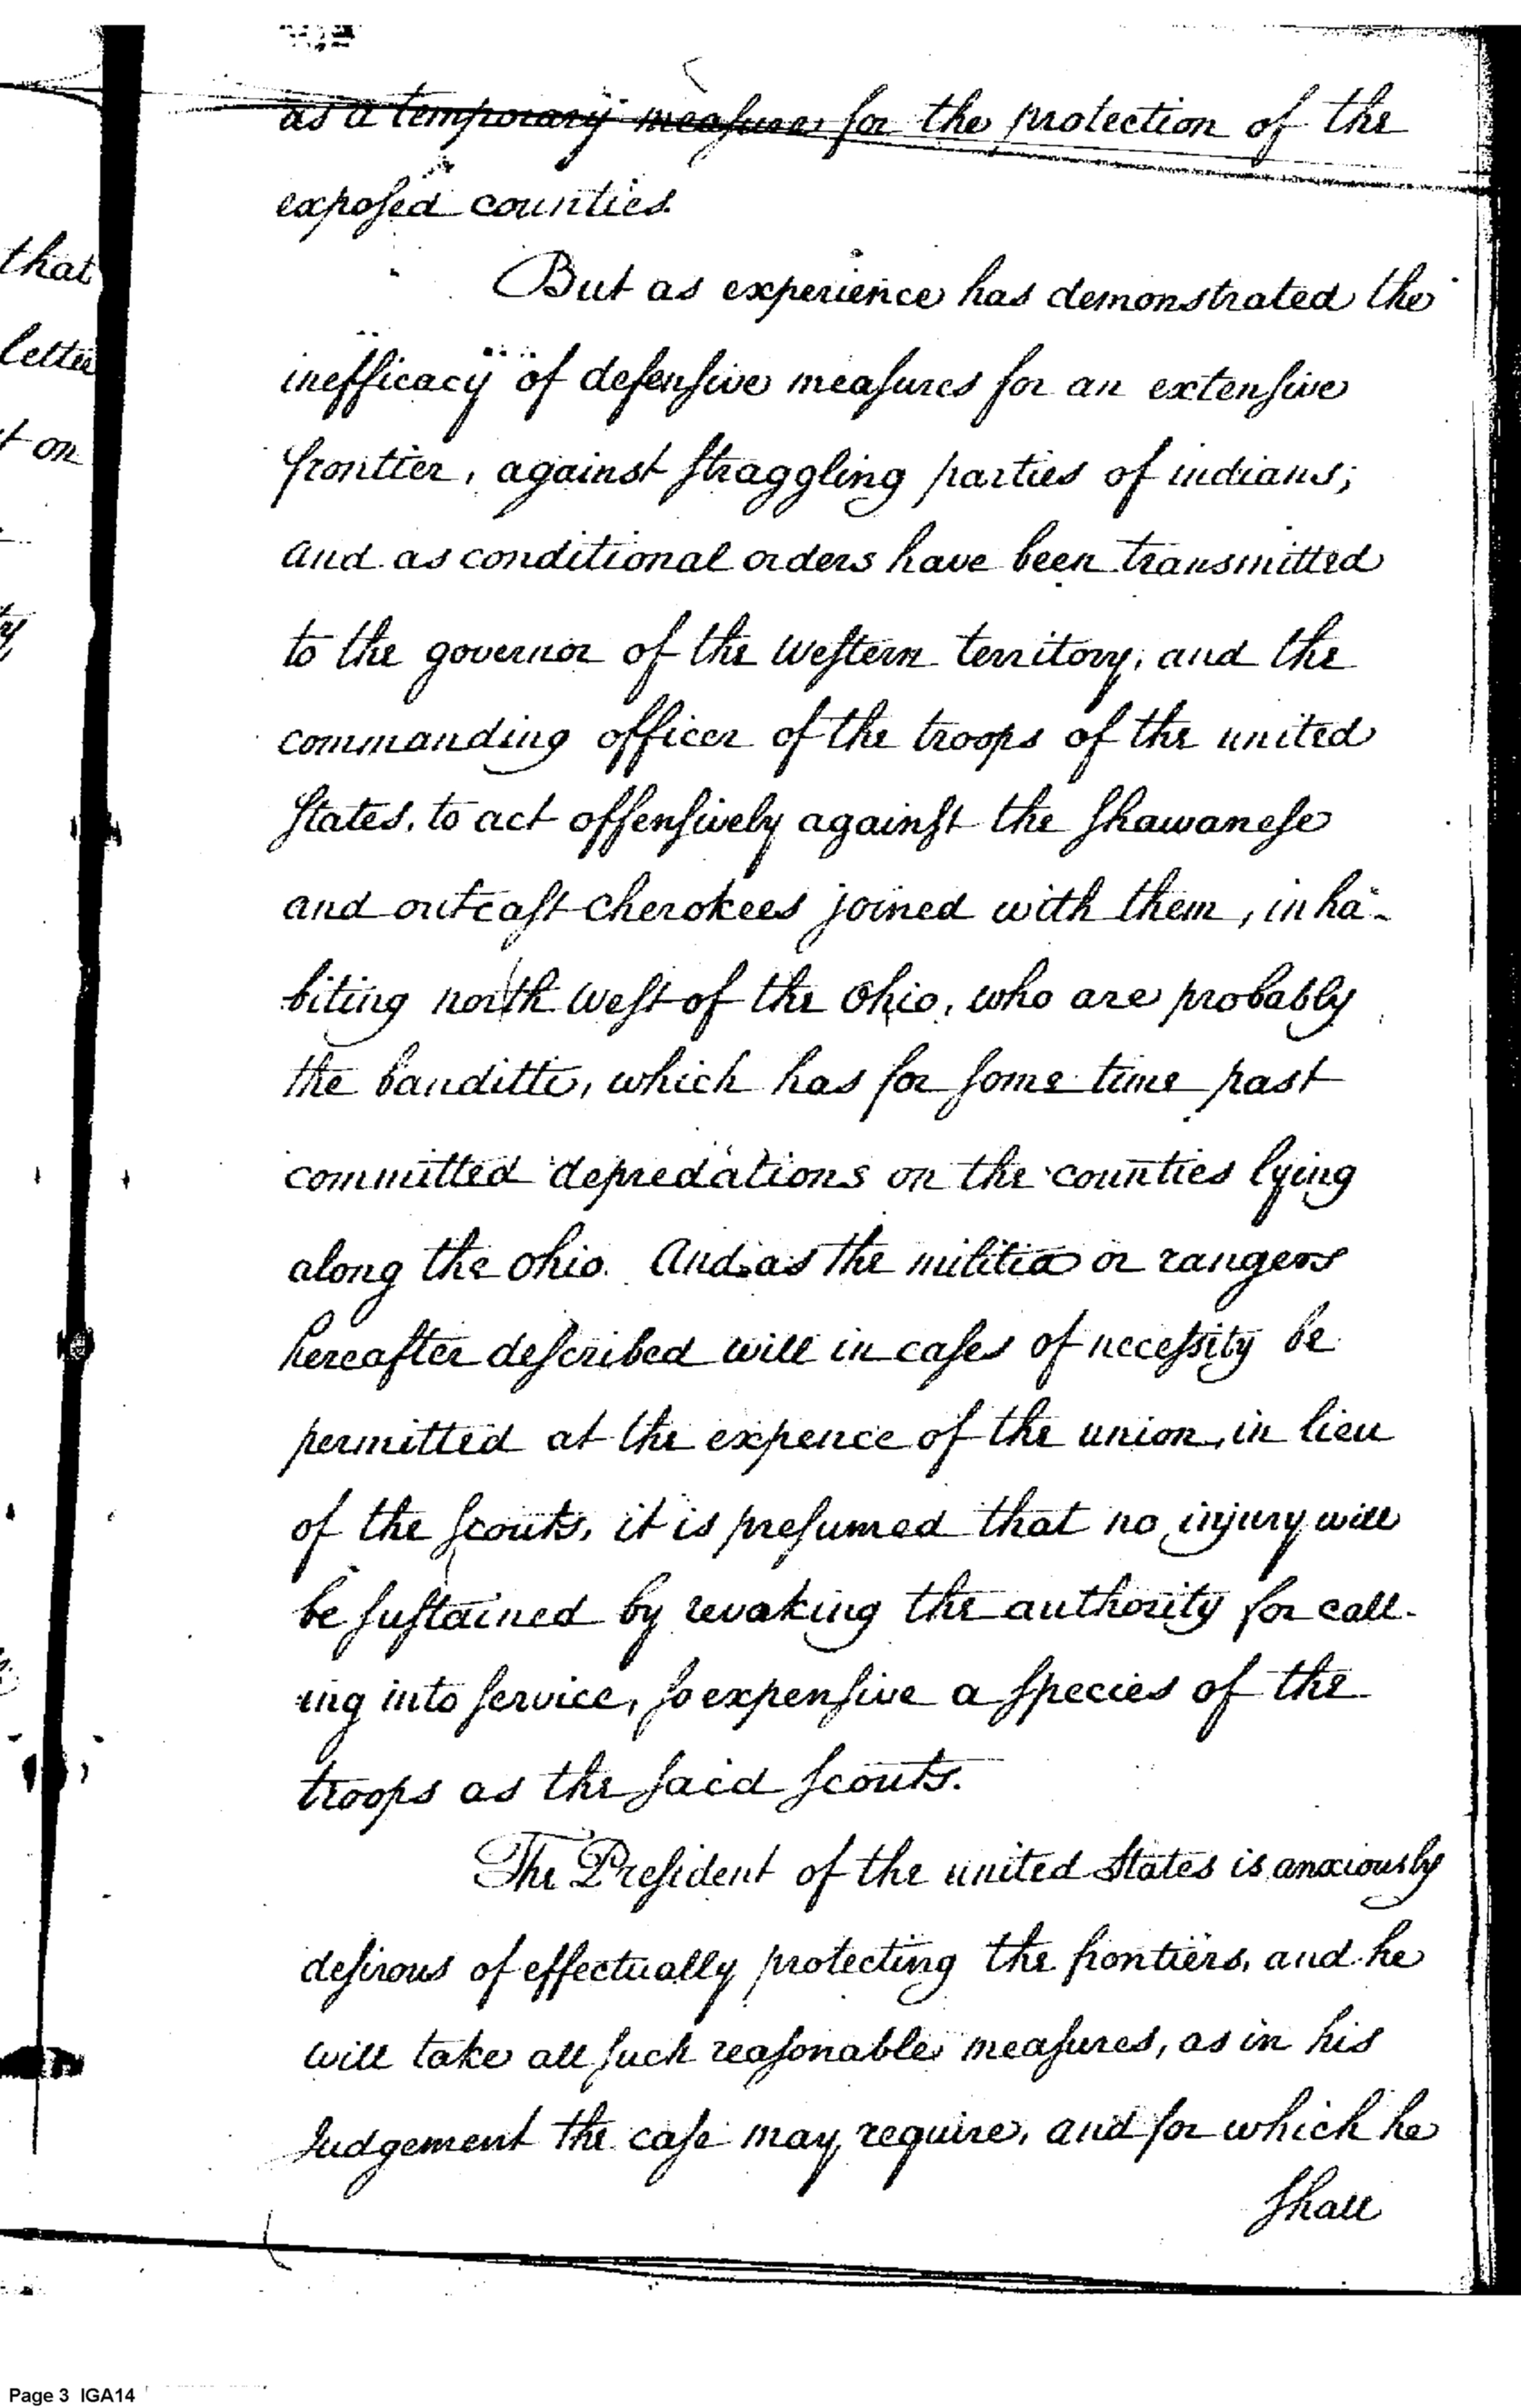 as a temporary measure for the protection of the
exposed counties.
But as experience has demonstrated the
inefficacy of defensive measures for an extensive
frontier, against straggling parties of indians;
and as conditional orders have been transmitted
to the governor of the western territory, and the
commanding officer of the troops of the united
States, to act offensively against the Shawanese
and outcast cherokees joined with them, inha-
biting north west of the Ohio, who are probably
the banditti, which has for some time past
committed depredations on the counties lying
along the Ohio. And as the militia or rangers
hereafter described will in cases of necessity be
permitted at the expence of the union, in lieu
of the Scouts, it is presumed that no injury will
be sustained by revoking the authority for call-
ing into service, so expensive a species of the
troops as the said Scouts.
The President of the united States is anxiously
desirous of effectually protecting the frontiers, and he
will take all such reasonable measures, as in his
Judgement the case may require, and for which he
shall
that
letter
t on
Page 3 IGA14